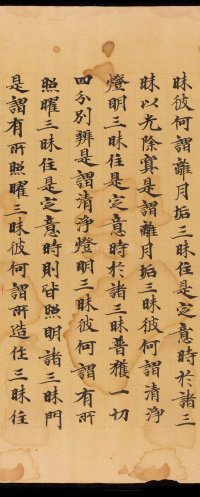 昧彼何謂離月垢三昧住是定意時於諸三
昧以光除冥是謂離月垢三昧彼何謂清淨
燈明三昧住是定意時於諸三昧普獲一切
四分別辯是謂清淨燈明三昧彼何謂有所
照曜三昧住是定意時則皆照明諸三昧門
是謂有所照曜三昧彼何謂所造住三昧住